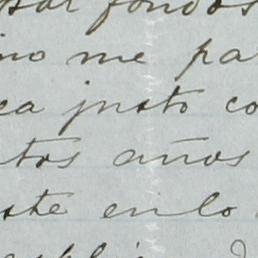 sar fondos
ino me pa
ca justo co
tos años
ste en lo